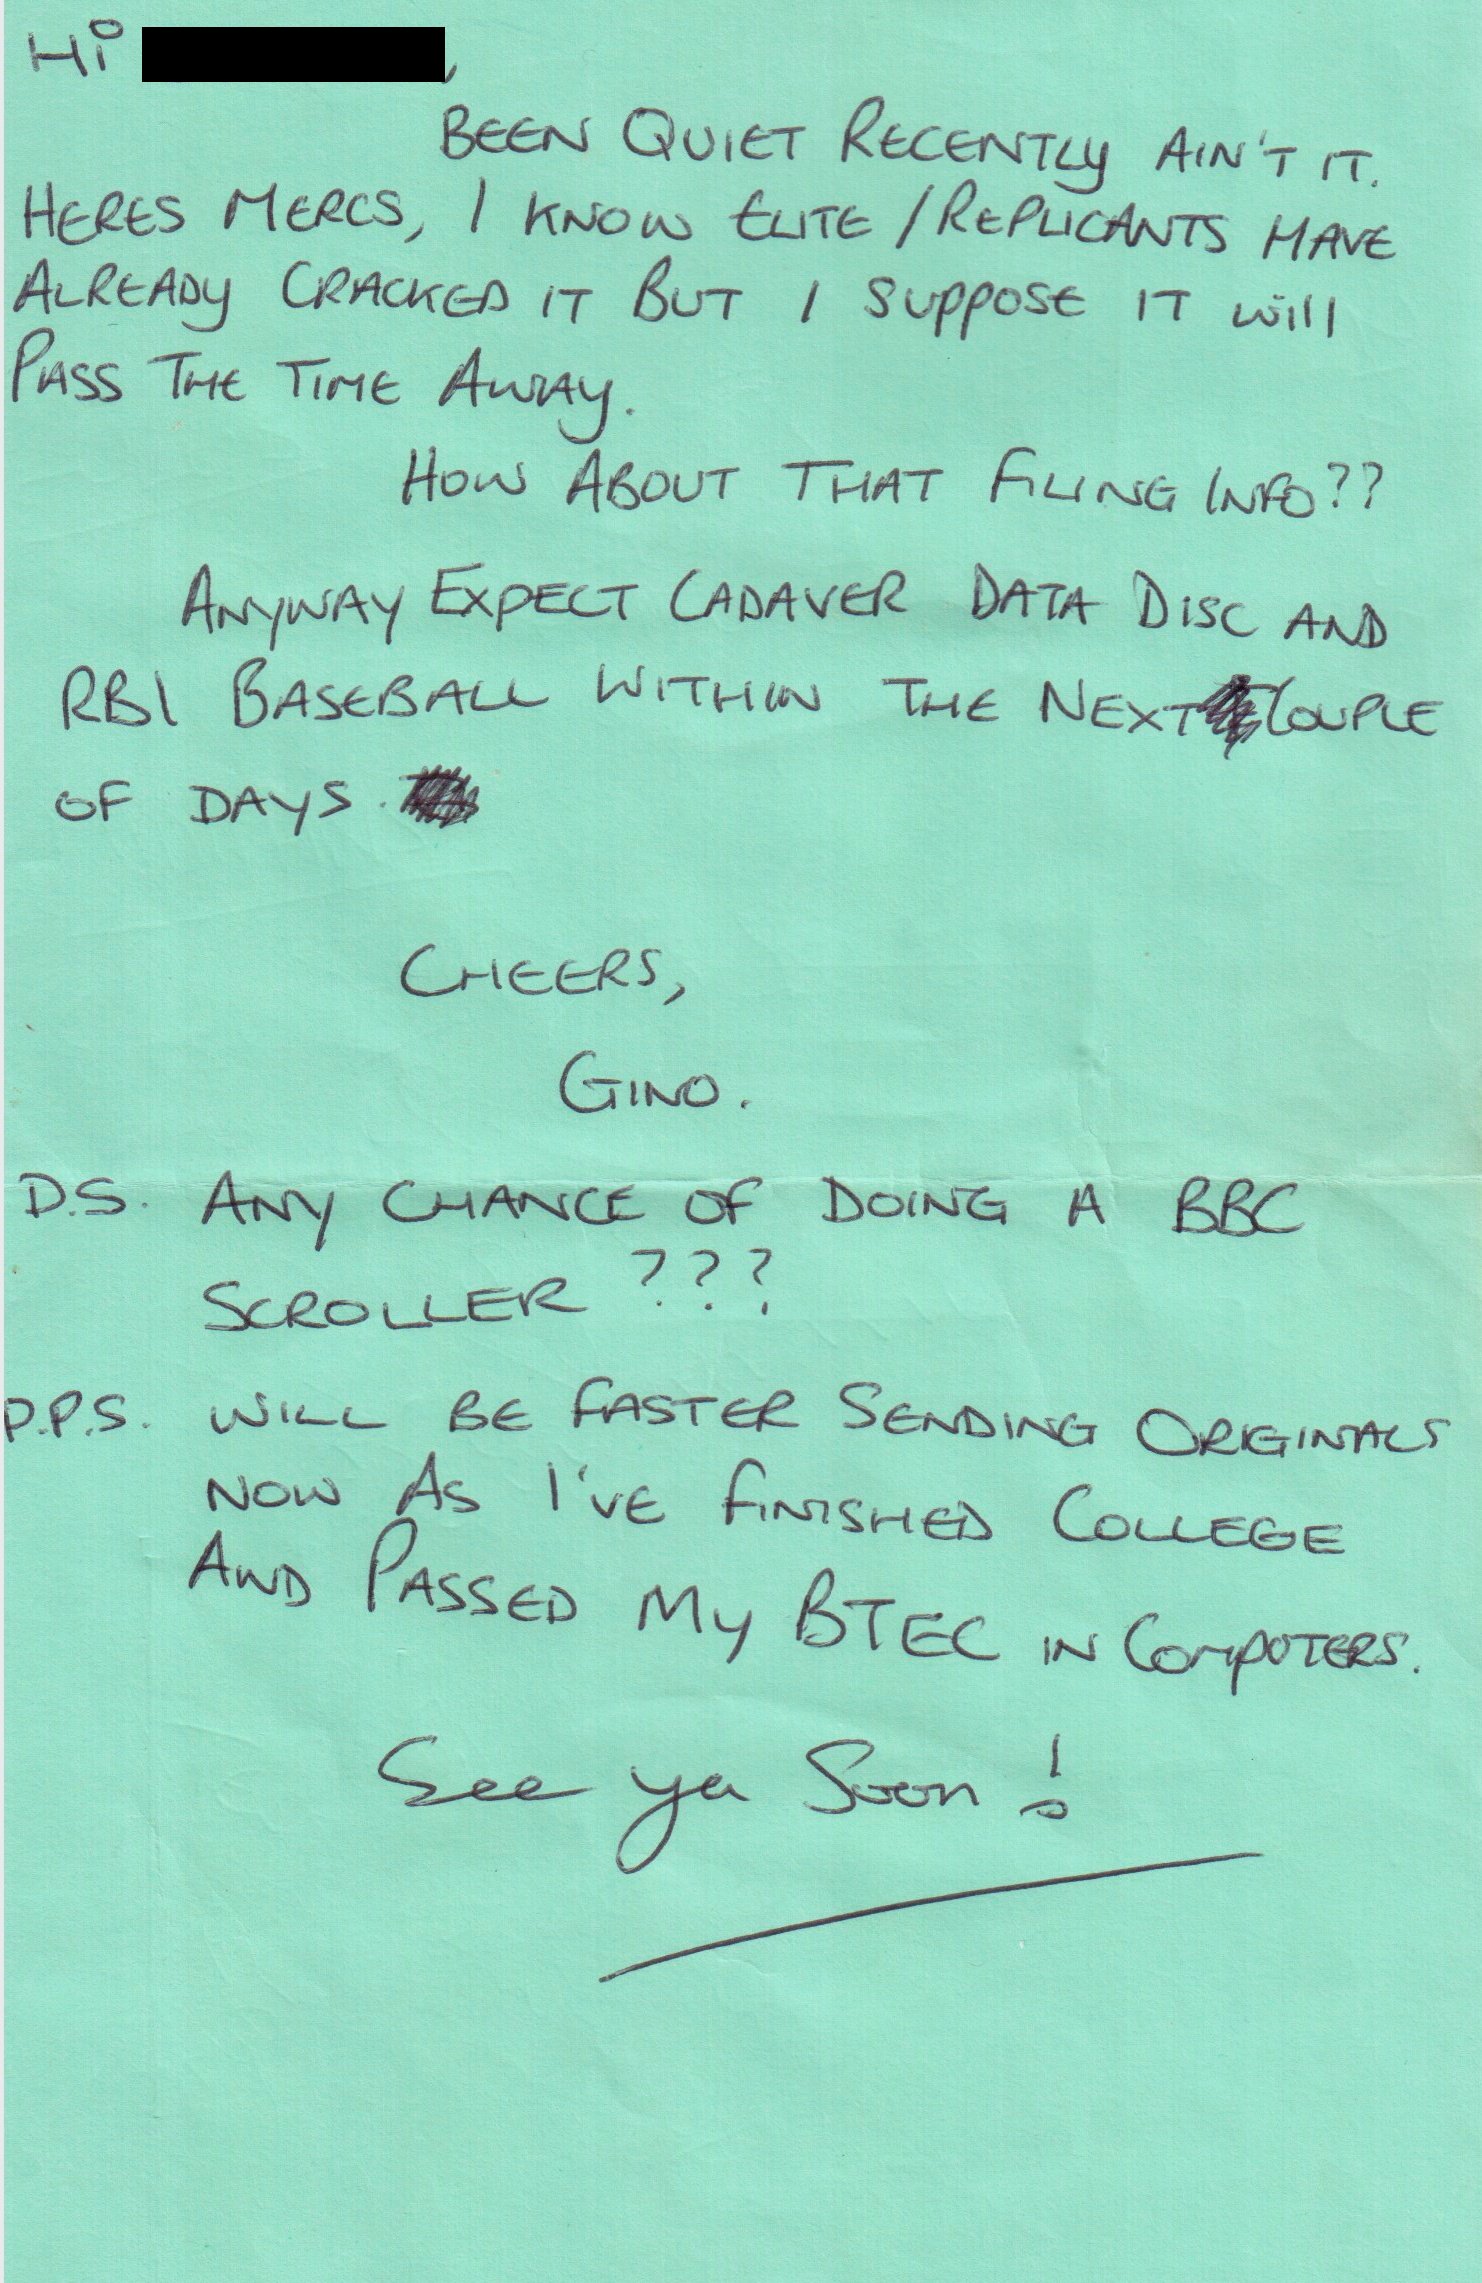 Hi ,
BEEN QUIET RECENTLY AIN'T IT.
HERES MERCS, I KNOW ELITE / REPLICANTS HAVE
ALREADY CRACKED IT BUT I SUPPOSE IT will
PASS THE TIME AWAY.
HOW ABOUT THAT FILING INFO??
ANYWAY EXPECT CADAVER DATA DISC AND
RBI BASEBALL WITHIN THE NEXT COUPLE
OF DAYS.
CHEERS,
GINO.
P.S. ANY CHANCE OF DOING A BBC
SCROLLER ???
P.P.S. WILL BE FASTER SENDING ORIGINALS
NOW AS I'VE FINISHED COLLEGE
AND PASSED MY BTEC IN COMPUTERS.
See ya Soon !